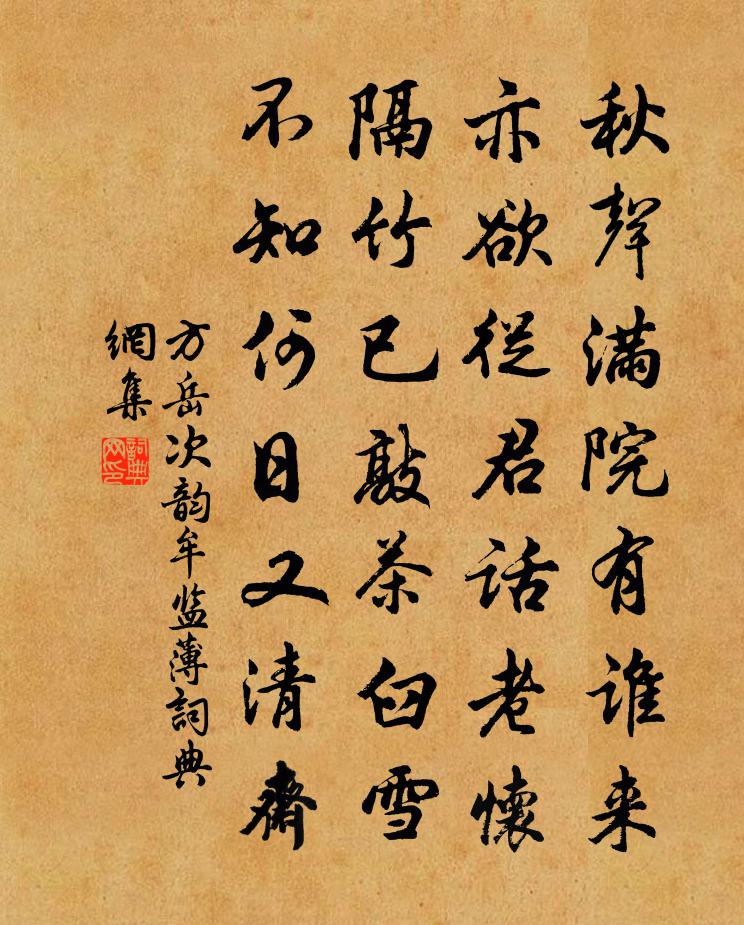 秋聲满院有谁来
亦欲從君話老懷
隔竹已敲茶臼雪
不知何日又清齋
方岳次韵牟监薄詞典
網集
詞典网印